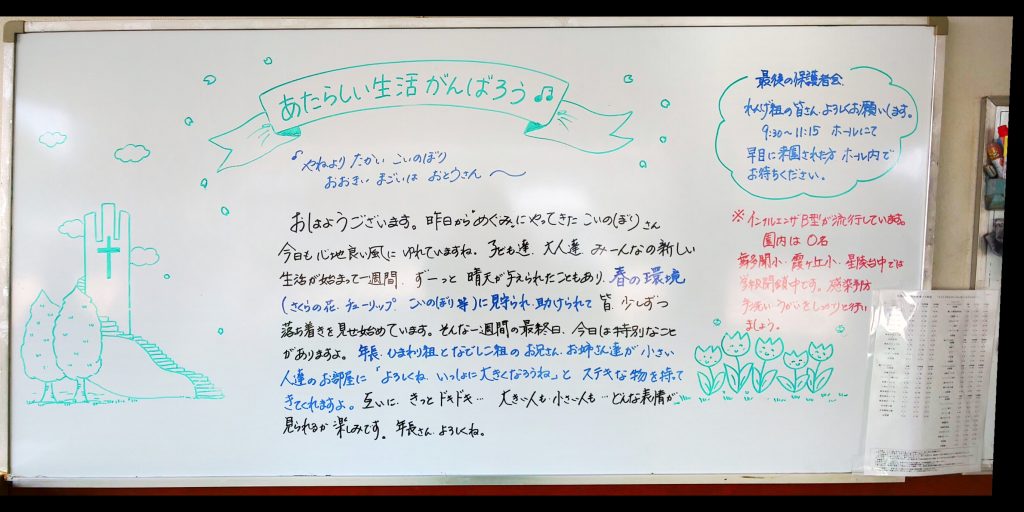 あたらしい生活がんばろう♫
♪やねより たかい こいのぼり
おおきい まごいは おとうさん 〜
おはようございます。昨日から"めぐみ"にやってきた こいのぼりさん
今日も心地良い風に ゆれていますね。子ども達、大人達、みーんなの新しい
生活が始まって一週間、ずーっと 晴天が与えられたこともあり、春の環境
(さくらの花、チューリップ、こいのぼり等)に見守られ・助けられて 皆、少しずつ
落ち着きを見せ始めています。そんな一週間の最終日、今日は特別なこと
がありますよ。年長、ひまわり組となでしこ組のお兄さん、お姉さん達が小さい
人達のお部屋に「よろしくね、いっしょに大きくなろうね」と ステキな物を持って
きてくれますよ。互いに、きっとドキドキ… 大きい人も・小さい人も…どんな表情が
見られるか 楽しみです。年長さん よろしくね。
最後の保護者会
れんげ組の皆さん、よろしくお願いします。
9:30〜11:15 ホールにて
早目に来園された方 ホール内で
お待ちください。
※インフルエンザB型が流行しています。
園内は0名
舞多聞小・霞ヶ丘小・星陵台中では
学級閉鎖中です。感染予防
手洗い・うがいをしっかりと行い
ましょう。